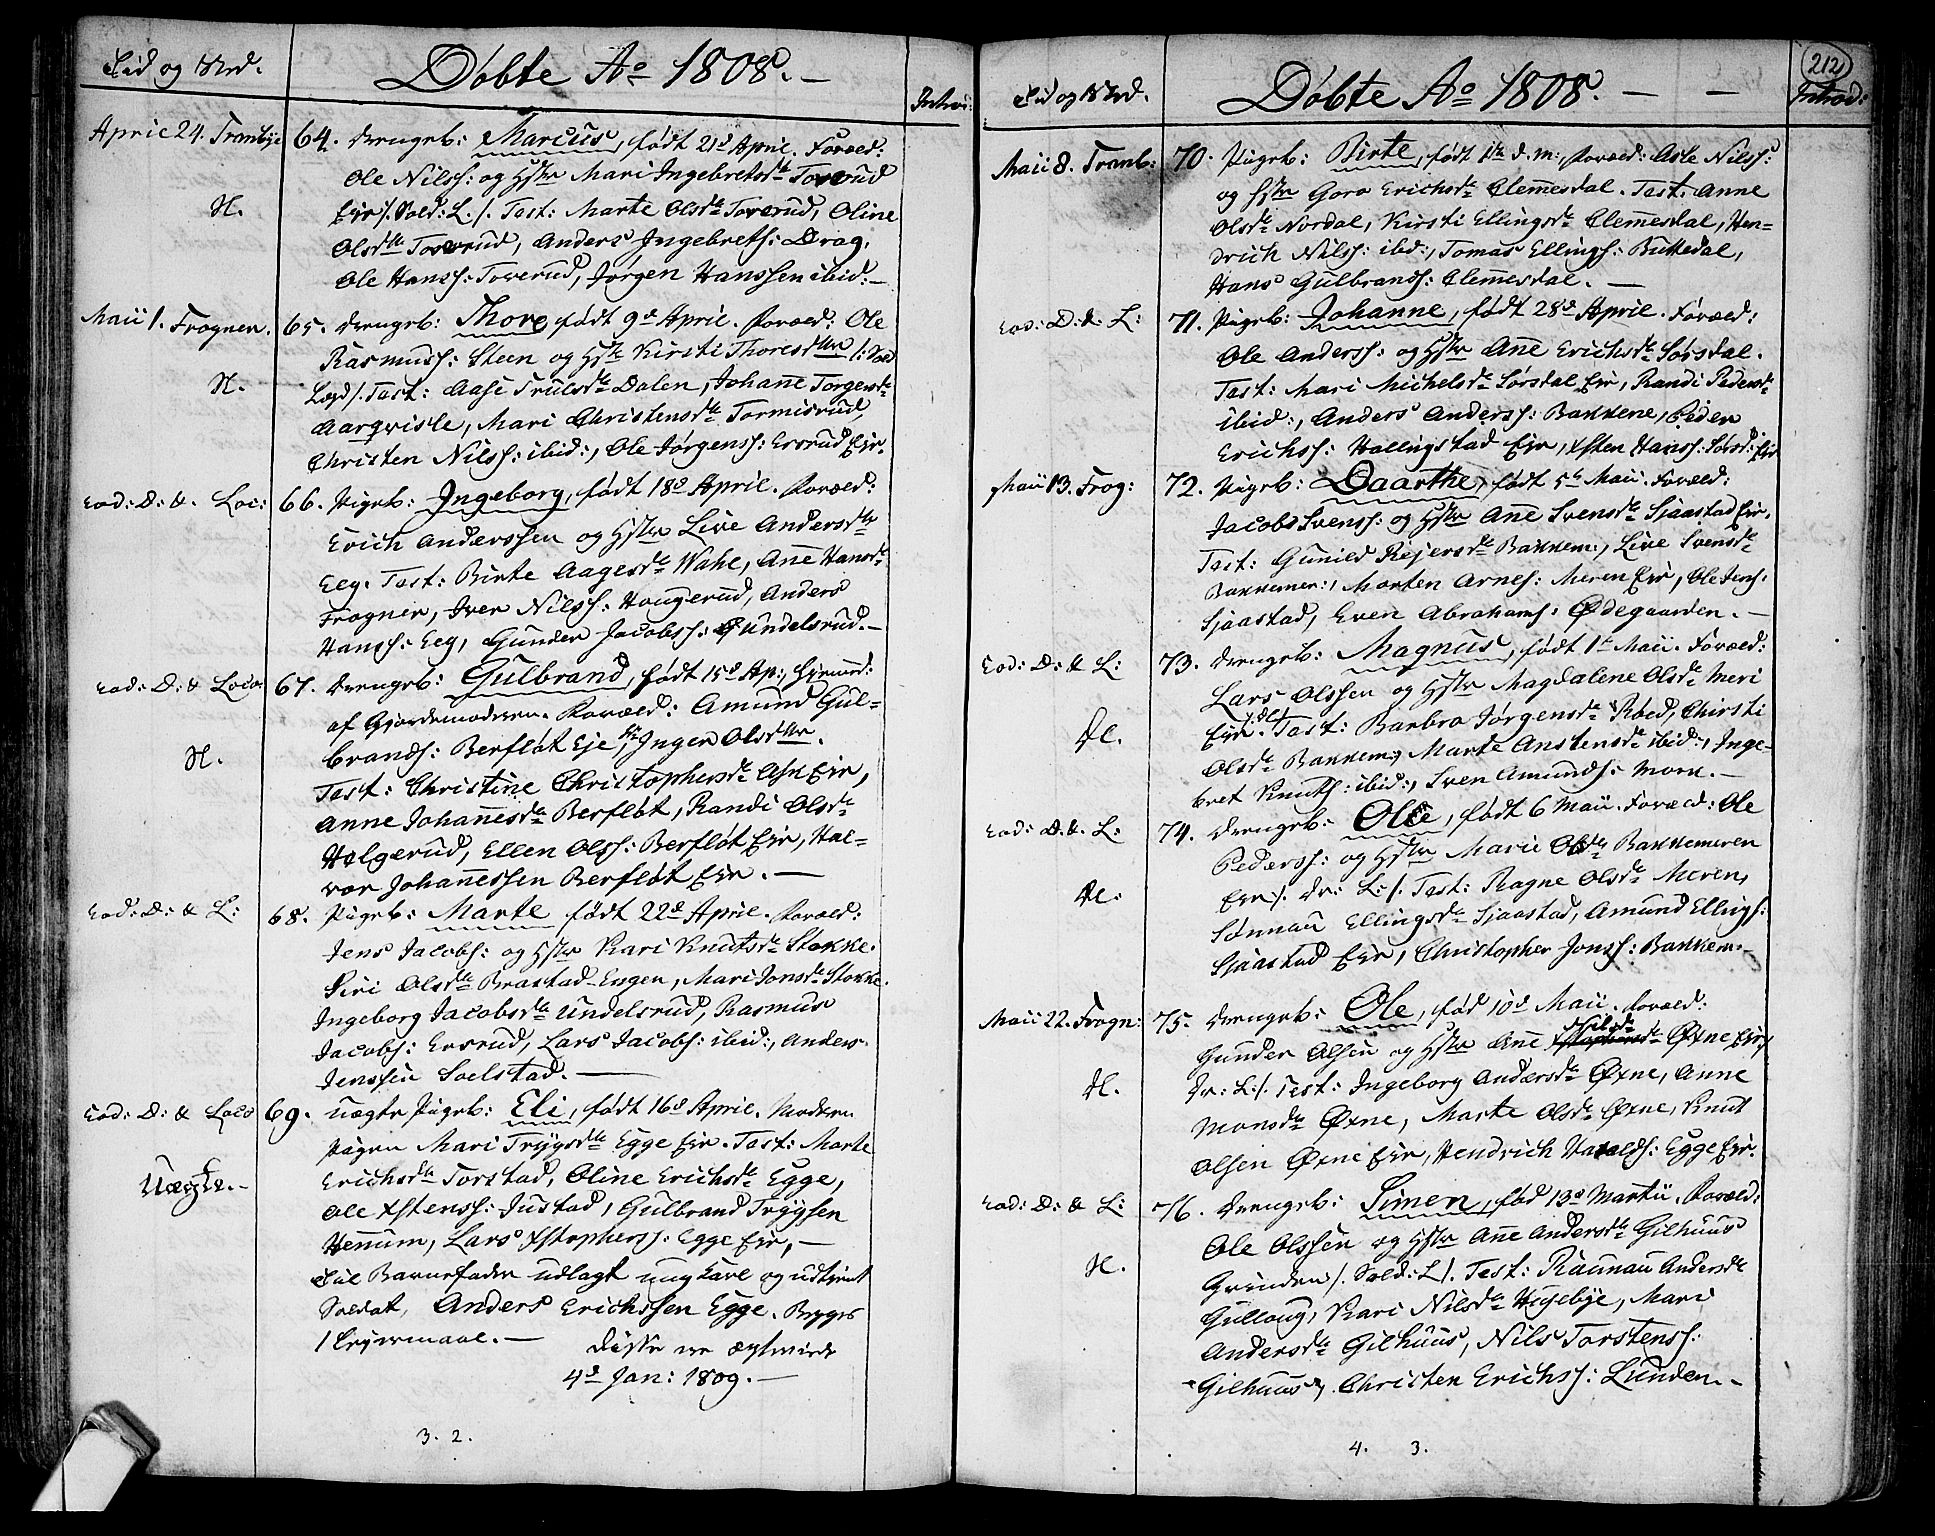 Tid og Sted.
Døbte Ao 1808. —
Introd:
April 24. Tranbye
64. Drengeb: Marcus, født 21d April. Foræld:
Ole Nilss: og Hstr Mari Ingebretsdtr Toverud
N.
Eir /. Sold: L. /. Test: Marte Olsdtr Toverud, Oline
Olsdtr Toverud, Anders Ingebretss: Drag,
Ole Hanss: Toverud, Jørgen Hanssen ibid: —
Maii 1. Frogner.
65. Drengeb: Thore, født 9d April. Foræld: Ole
Rasmuss: Steen og Hstr Kirsti Thoresdtr /: Sold
N.
Lægd /. Test: Aase Trulsdtr Dalen, Johanne Torgersdtr
Aarqvisle, Mari Christensdtr Tormisrud,
Christen Nilss: ibid:, Ole Jørgenss: Ersrud Eir.
Eod: D: & Loc:
66. Pigeb: Ingeborg, født 18d April. Foræld:
Erich Anderssen og Hstr Live Andersdtr
Eeg. Test: Birte Aagesdtr Wahl, Anne Hansdtr
Frogner, Iver Nilss: Haugerud, Anders
Hanss: Eeg, Gunder Jacobss: Gundelsrud. —
Eod: D: & Loco
67. Drengeb: Gulbrand, født 15d Ap:, hjemmed:
af Gjordemoderen. Foræld: Amund Gul=
brands: Berfløt Eje, Inger Olsdtr.
N.
Test: Christine Christophersdtr Ask Eir,
Anne Johannesdtr Berfløt, Randi Olsdtr
Holgerud, Ellen Olss: Berfløt Eir, Hal=
vor Johannessen Berfløt Eir. —
Eod: D: & L:
68. Pigeb: Marte født 22d April. Foræld:
Jens Jacobs: og Hstr Kari Knutsdtr Stokke.
Siri Olsdtr Brastad-Engen, Mari Jonsdtr Stokke.
Ingeborg Jacobsdtr Undelsrud, Rasmus
Jacobs: Ersrud, Lars Jacobs: ibid:, Anders
Jenssen Soelstad. —
Eod: D: & Loco
69. Uægte Pigeb: Eli, født 16d April. Moderen
Pigen Mari Trygsdtr Egge Eir. Test: Marte
Uægte. —
Erichsdtr Torstad, Oline Erichsdtr Egge,
Ole Xstenss: Justad, Gulbrand Trygsen
Hennum, Lars Xstopherss: Egge Eir, —
Til Barnefader udlagt ungkarl og udtient
Soldat, Anders Erichssen Egge. Begges
1 Leyermaal. —
Disse ere ægteviede
4d Jan: 1809. —
3. 2.
212
Tid og Sted.
Døbte Ao 1808. — —
Introd:
Maii 8. Tranb:
70. Pigeb: Birte, født 1te d. M:, Foræld: Asle Nilss:
og Hstr Goro Erichsdtr Clemmesdal. Test. Anne
Olsdtr Nordal, Kirsti Ellingsdtr Clemmesdal, Hen=
drich Nilss: ibid:, Tomas Ellings: Buttedal,
Hans Gulbrands: Clemmesdal. —
Eod: D: & L:
71. Pigeb: Johanne, født 28d April. Foræld:
Ole Anderss: og Hstr Anne Erichsdtr Sørsdal.
Test: Mari Michelsdtr Sørsdal Eir, Randi Pedersdtr
ibid:, Anders Anderss: Bakkene, Peder
Erichss: Hallingstad Eir, Xsten Hanss: Sørsd: Eir
Maii 13. Frog:
72. Pigeb: Daarthe, født 5te Maii. Foræld:
Jacob Svenss: og Hstr Anne Svensdtr Sjaastad Eir.
Test: Gunild Rejersdtr Bakkem:, Live Svensdtr
Bakkemer:, Morten Arnes: Meren Eir, Ole Jens:
Sjaastad, Even Abrahams: Ødegaarden. —
Eod: D: & L:
73. Drengeb: Magnus, født 1te Maii. Foræld:
Lars Olssen og Hstr Magdalene Olsdtr Meri
Eir. Test: Barbro Jørgensdtr Røed, Chirsti
N.
Olsdtr Bakkem:, Marte Anstensdtr ibid:, Inge=
bret Knuts: ibid:, Sven Amunds: Mork. —
Eod: D. & L:
74. Drengeb: Ole, født 6 Maii. Foræld: Ole
Pederss: og Hstr Marie Olsdtr Bakkemeren
N.
Eir /. Dr: L: /. Test: Ragne Olsdtr Meren,
Sønnau Ellingsdtr Sjaastad, Amund Ellings:
Sjaastad Eir, Christopher Jonss: Bakkem. —
Maii 22. Frogn:
75. Drengeb: Ole, fød 10d Maii. Foræld:
Gunder Olsen og Hstr Anne Øxne Eir /.
N.
Dr: L: /. Test: Ingeborg Andersdtr Øxne, Anne
Monsdtr Øxne, Marte Olsdtr Øxne, Knut
Olsen Øxne Eir, Hendrich Haralds: Egge Eir.
Eod: D: & L:
76. Drengeb: Simen, fød 13d Martii. Foræld:
Ole Olssen og Hstr Anne Andersdtr Gilhuus
N.
Grinden /. Sold: L /. Test: Raunau Andersdtr
Gulloug, Kari Nilsdtr Hejebye, Mari
Andersdtr Gilhuus, Nils Torstens:
Gilhuus, Christen Erichs: Lunden. —
4. 3.